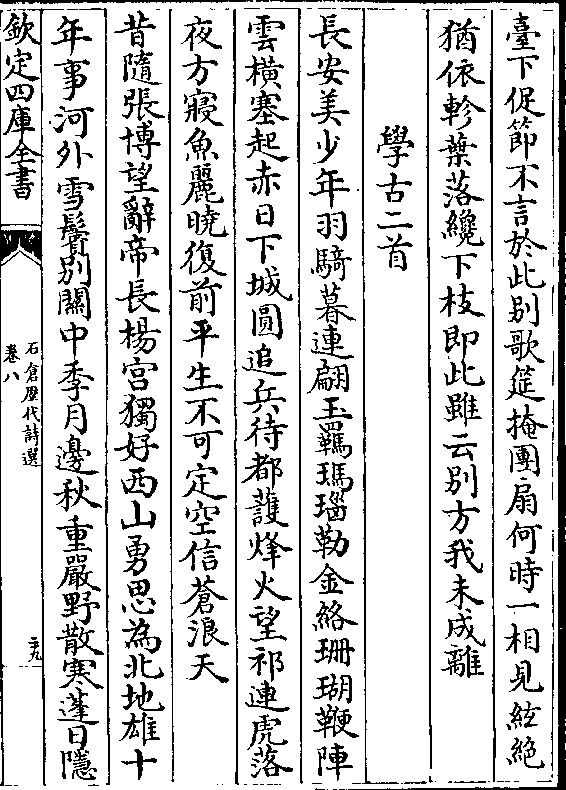 臺下促節不言於此别歌筵掩團扇何時一相見絃絶
猶依軫葉落纔下枝即此雖云别方我未成離
學古二首
長安美少年羽騎暮連翩玉羈瑪瑙勒金絡珊瑚鞭陣
雲橫塞起赤日下城圓追兵待都䕶烽火望祁連虎落
夜方寢魚麗曉復前平生不可定空信蒼浪天
昔隨張博望辭帝長楊宫獨好西山勇思為北地雄十
年事河外雪鬢别關中季月邊秋重嚴野散寒蓬日隱
欽定四庫全書
石倉歴代詩選
卷八
二九